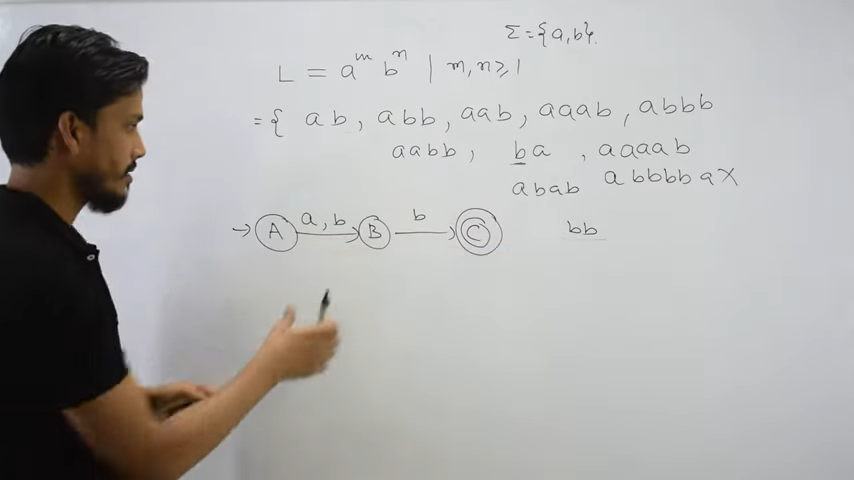 Σ = {a, b}.
L = a^m b^n | m, n ≥ 1
= { ab, abb, aab, aaab, abbb
aabb, ba, aaaab
abab abbbba X
→ A a, b B b C
bb